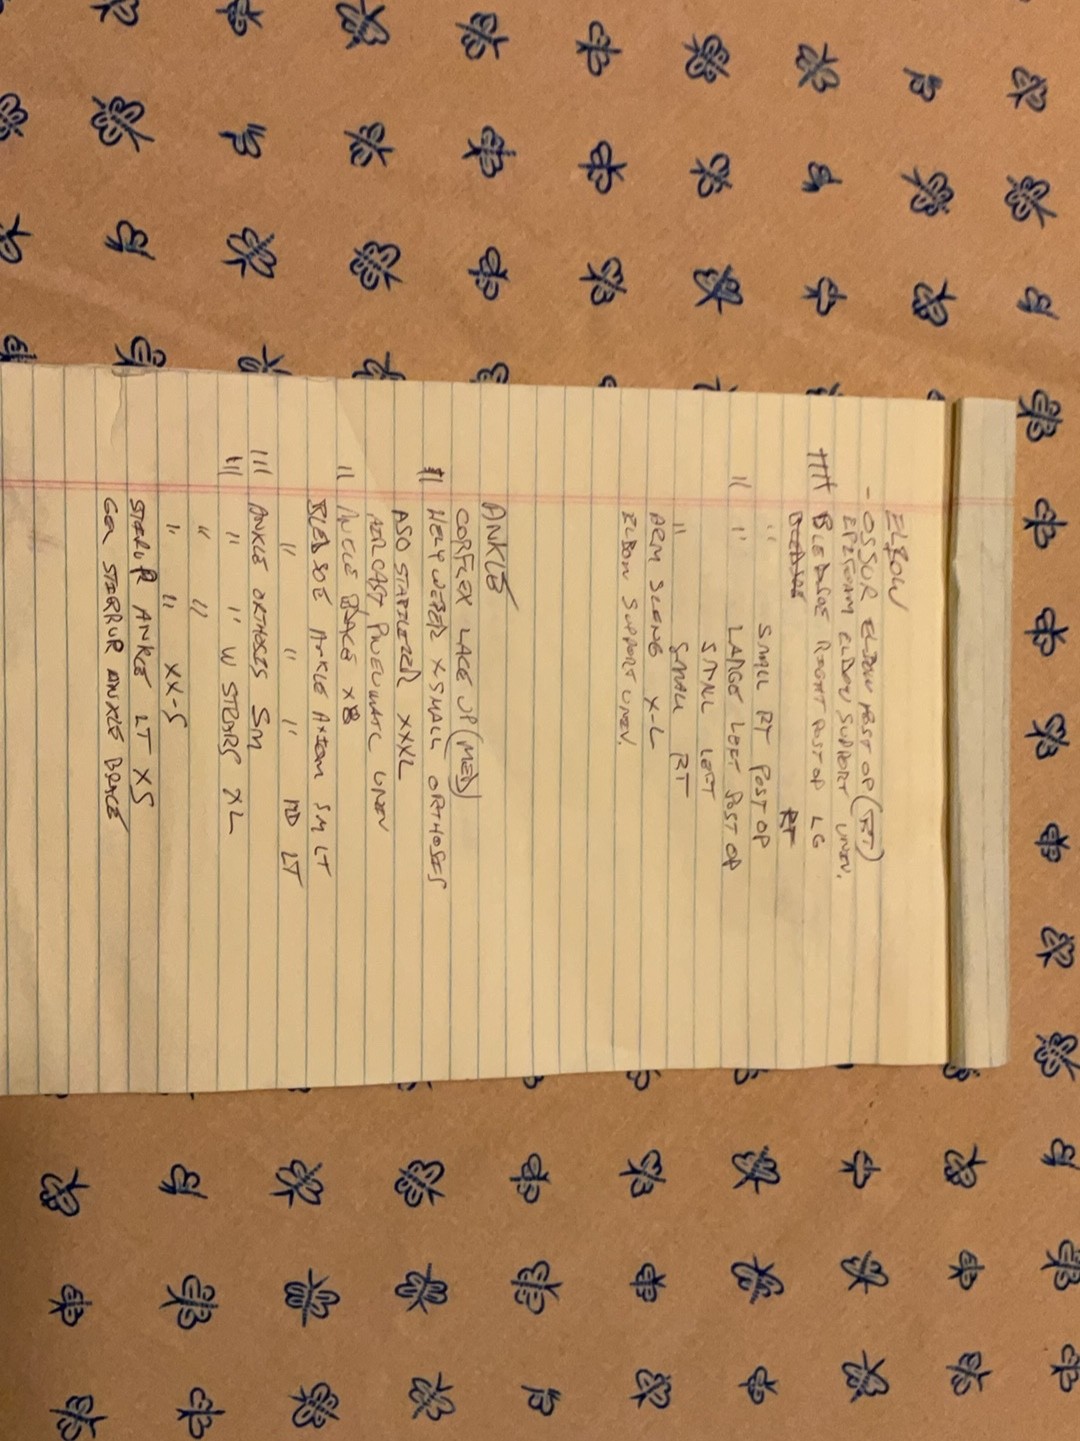 ELBOW
- OSSUR ELBOW POST OP (RT)
EPIFOAM ELBOW SUPPORT UNIV.
BLEDSOE RIGHT POST OP LG
BLEDSOE RT
" SMALL RT POST OP
|| " LARGE LEFT POST OP
SMALL LEFT
" SMALL RT
ARM SLING X-L
ELBOW SUPPORT UNIV.
ANKLE
CORFLEX LACE UP (MED)
|| HELY WEBER X SMALL ORTHOSIS
ASO STABILIZER XXXL
AIRCAST PNEUMATIC UNIV
|| ANKLE BRACE X8
BLEDSOE ANKLE AXIOM SM LT
" " " MD LT
||| ANKLE ORTHOSIS SM
||| " " W STRAPS XL
" "
" " XX-S
STIRUP ANKLE LT XS
GEL STIRRUP ANKLE BRACE